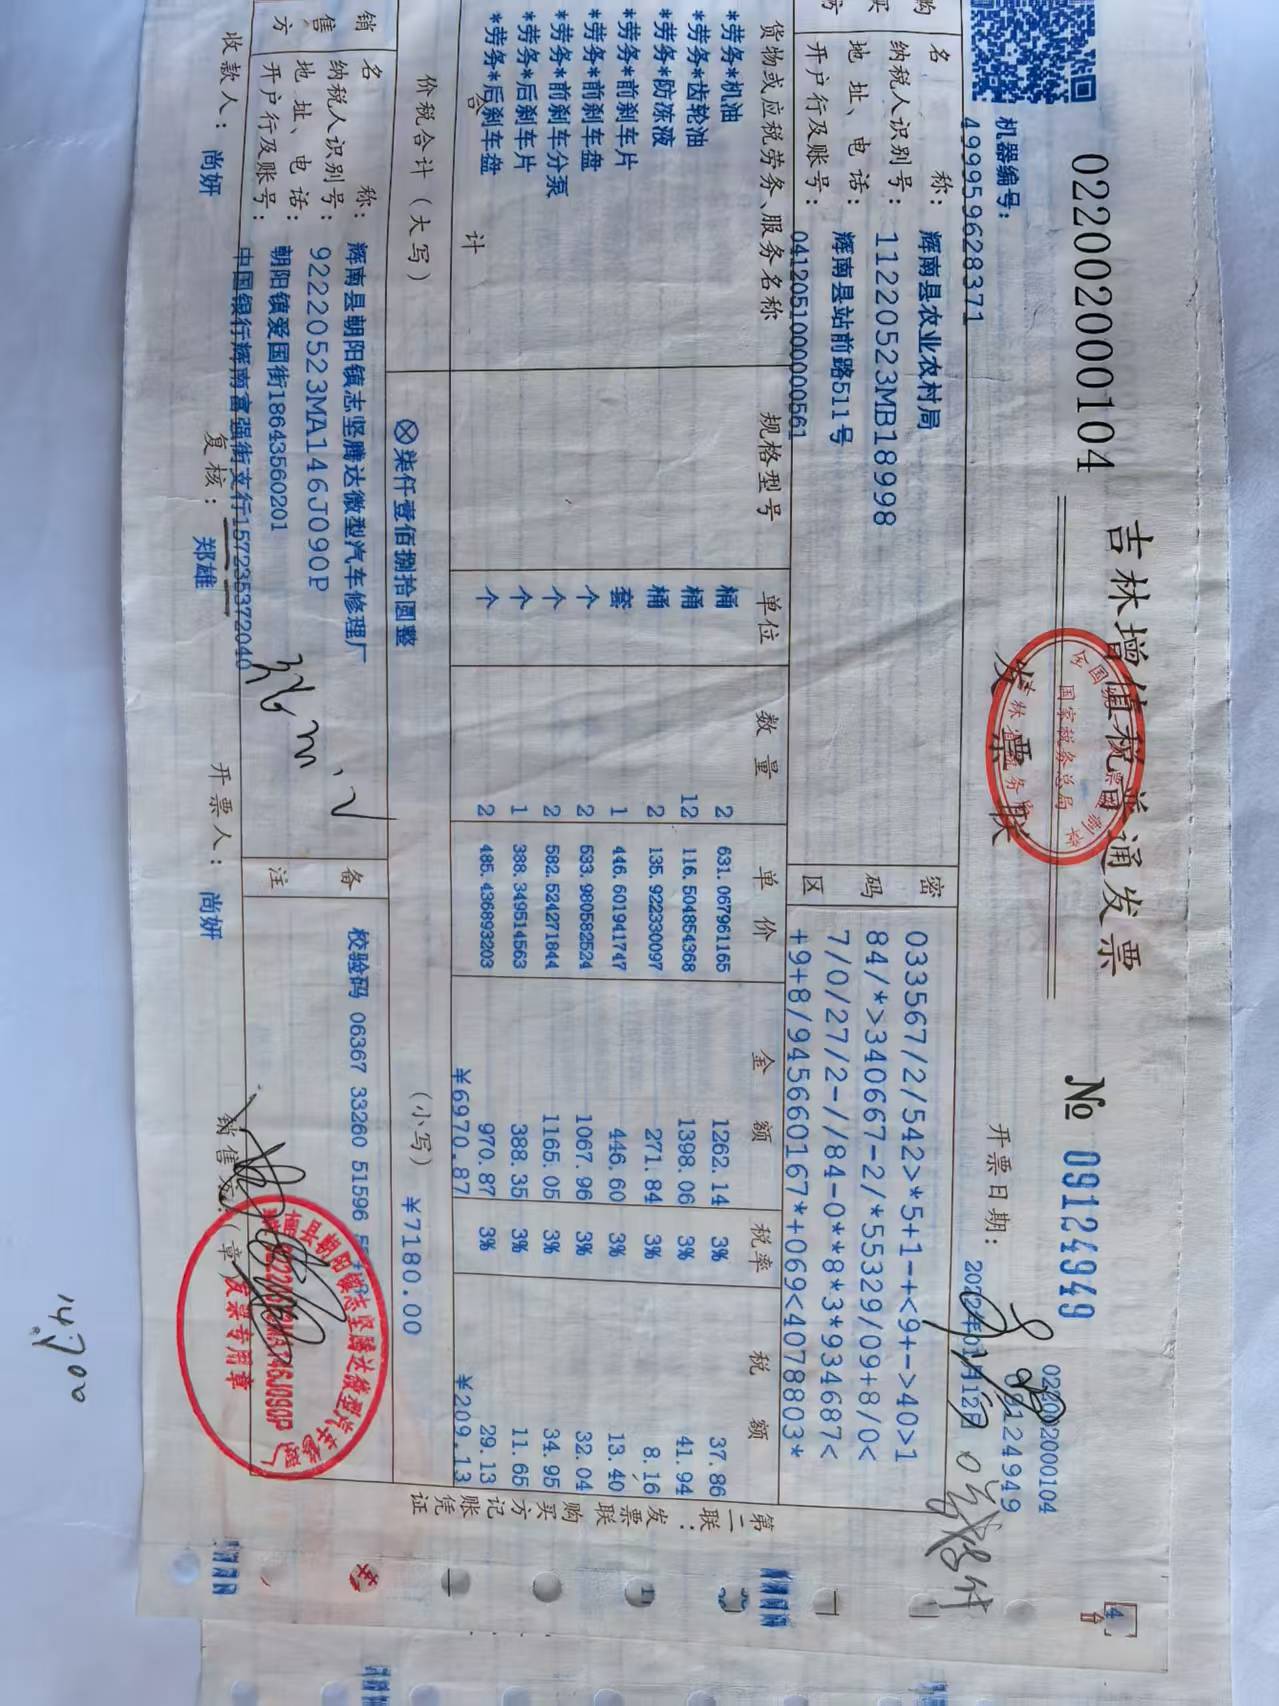 022002000104
吉林增值税普通发票
发票联
№ 09124949
022002000104
09124949
机器编号:
499959628371
开票日期:
2022年01月12日
购买方
名 称: 辉南县农业农村局
纳税人识别号: 11220523MB18998
地 址、电 话: 辉南县站前路511号
开户行及账号: 0412051000000561
密码区
033567/2/542>*5+1-+<9+->40>1
84/*>340667-2/*55329/09+8/0<
7/0/27/2-//84-0**8*3*934687<
+9+8/9456660167*+069<4078803*
货物或应税劳务、服务名称 规格型号 单位 数量 单价 金额 税率 税额
*劳务*机油 桶 2 631.067961165 1262.14 3% 37.86
*劳务*齿轮油 桶 12 116.504854368 1398.06 3% 41.94
*劳务*防冻液 桶 2 135.922330097 271.84 3% 8.16
*劳务*前刹车片 套 1 446.601941747 446.60 3% 13.40
*劳务*前刹车盘 个 2 533.980582524 1067.96 3% 32.04
*劳务*前刹车分泵 个 2 582.524271844 1165.05 3% 34.95
*劳务*后刹车片 个 1 388.349514563 388.35 3% 11.65
*劳务*后刹车盘 个 2 485.436893203 970.87 3% 29.13
合 计 ¥6970.87 ¥209.13
价税合计（大写） ⊗柒仟壹佰捌拾圆整 （小写） ¥7180.00
销售方
名 称: 辉南县朝阳镇志坚腾达微型汽车修理厂
纳税人识别号: 92220523MA146J090P
地 址、电 话: 朝阳镇爱国街18643560201
开户行及账号: 中国银行辉南富强街支行157235372040
备注
校验码 06367 33260 51596
收款人: 尚妍 复核: 郑雄 开票人: 尚妍 销售方:（章）
第二联:发票联 购买方记账凭证
国家税务总局
发票专用章
92220523MA146J090P